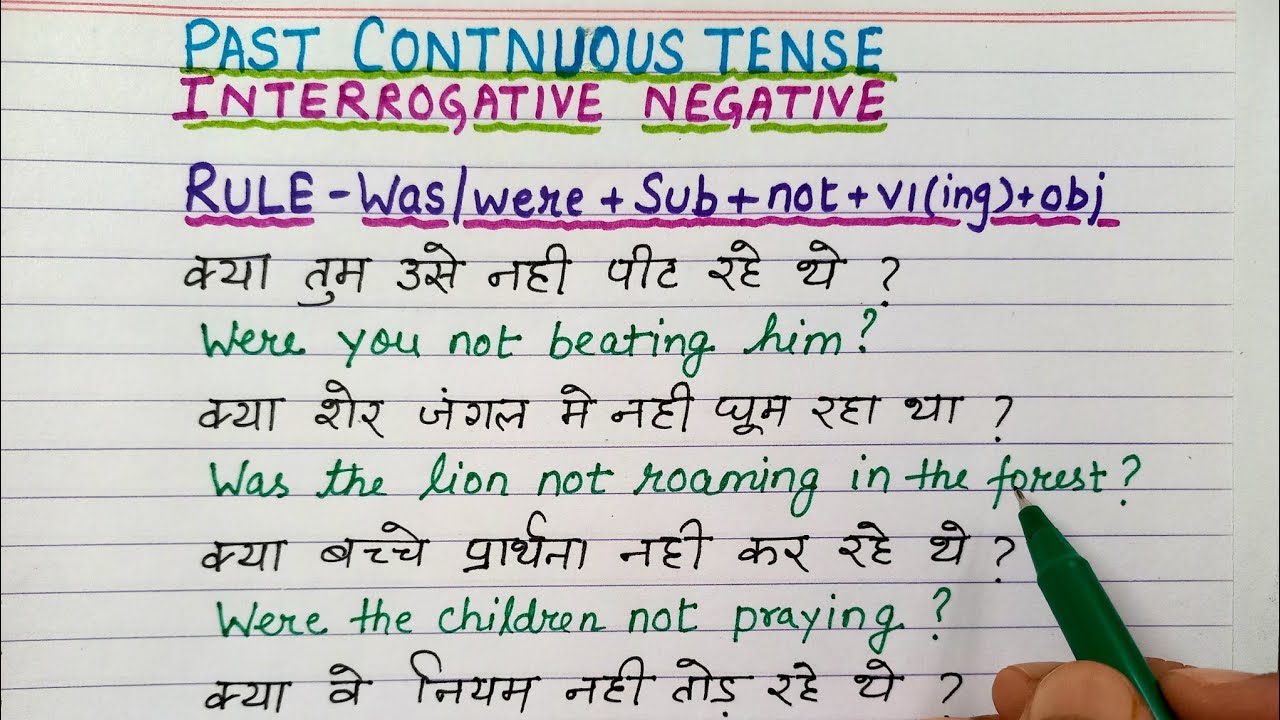 PAST CONTNUOUS TENSE
INTERROGATIVE NEGATIVE
RULE - Was/were + Sub + not + V1(ing) + obj
क्या तुम उसे नही पीट रहे थे ?
Were you not beating him?
क्या शेर जंगल मे नही घूम रहा था ?
Was the lion not roaming in the forest?
क्या बच्चे प्रार्थना नही कर रहे थे ?
Were the children not praying ?
क्या वे नियम नही तोड़ रहे थे ?